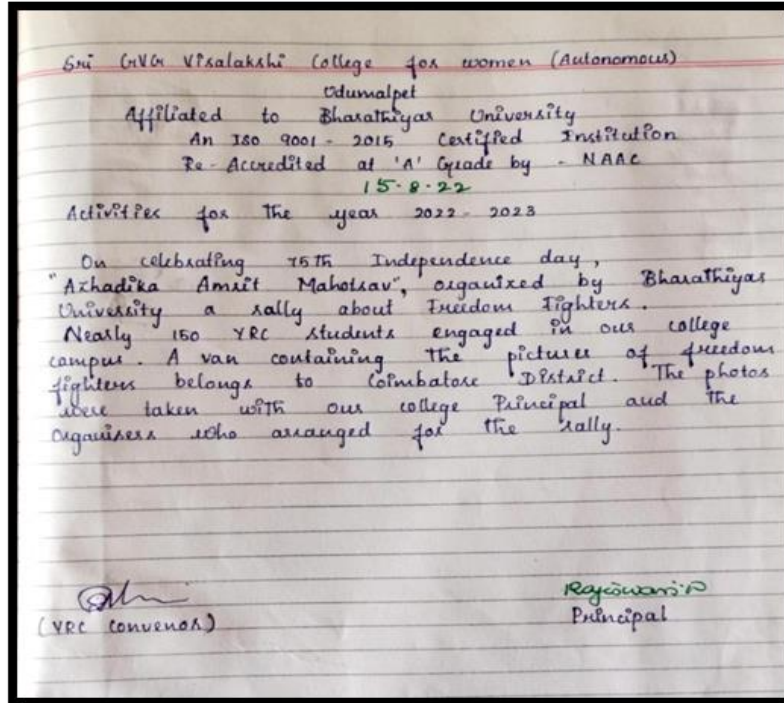 Sri GVG Visalakshi College for women (Autonomous)
Udumalpet
Affiliated to Bharathiyar University
An ISO 9001 - 2015 Certified Institution
Re - Accredited at 'A' Grade by - NAAC
15.8.22
Activities for the year 2022 - 2023
On celebrating 75th Independence day,
"Azhadika Amrit Mahotsav", organized by Bharathiyar
University a rally about Freedom Fighters.
Nearly 150 YRC students engaged in our college
campus. A van containing the pictures of freedom
fighters belongs to Coimbatore District. The photos
were taken with our college Principal and the
organisers who arranged for the rally.
Rajeswari.P
(YRC Convenor)
Principal